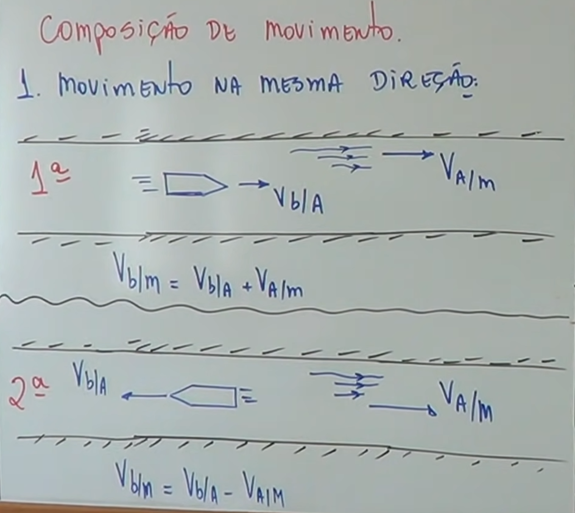 COMPOSIÇÃO DE MOVIMENTO.
1. MOVIMENTO NA MESMA DIREÇÃO:
1ª
Vb/A
VA/m
Vb/m = Vb/A + VA/m
2ª
Vb/A
VA/m
Vb/m = Vb/A - VA/M